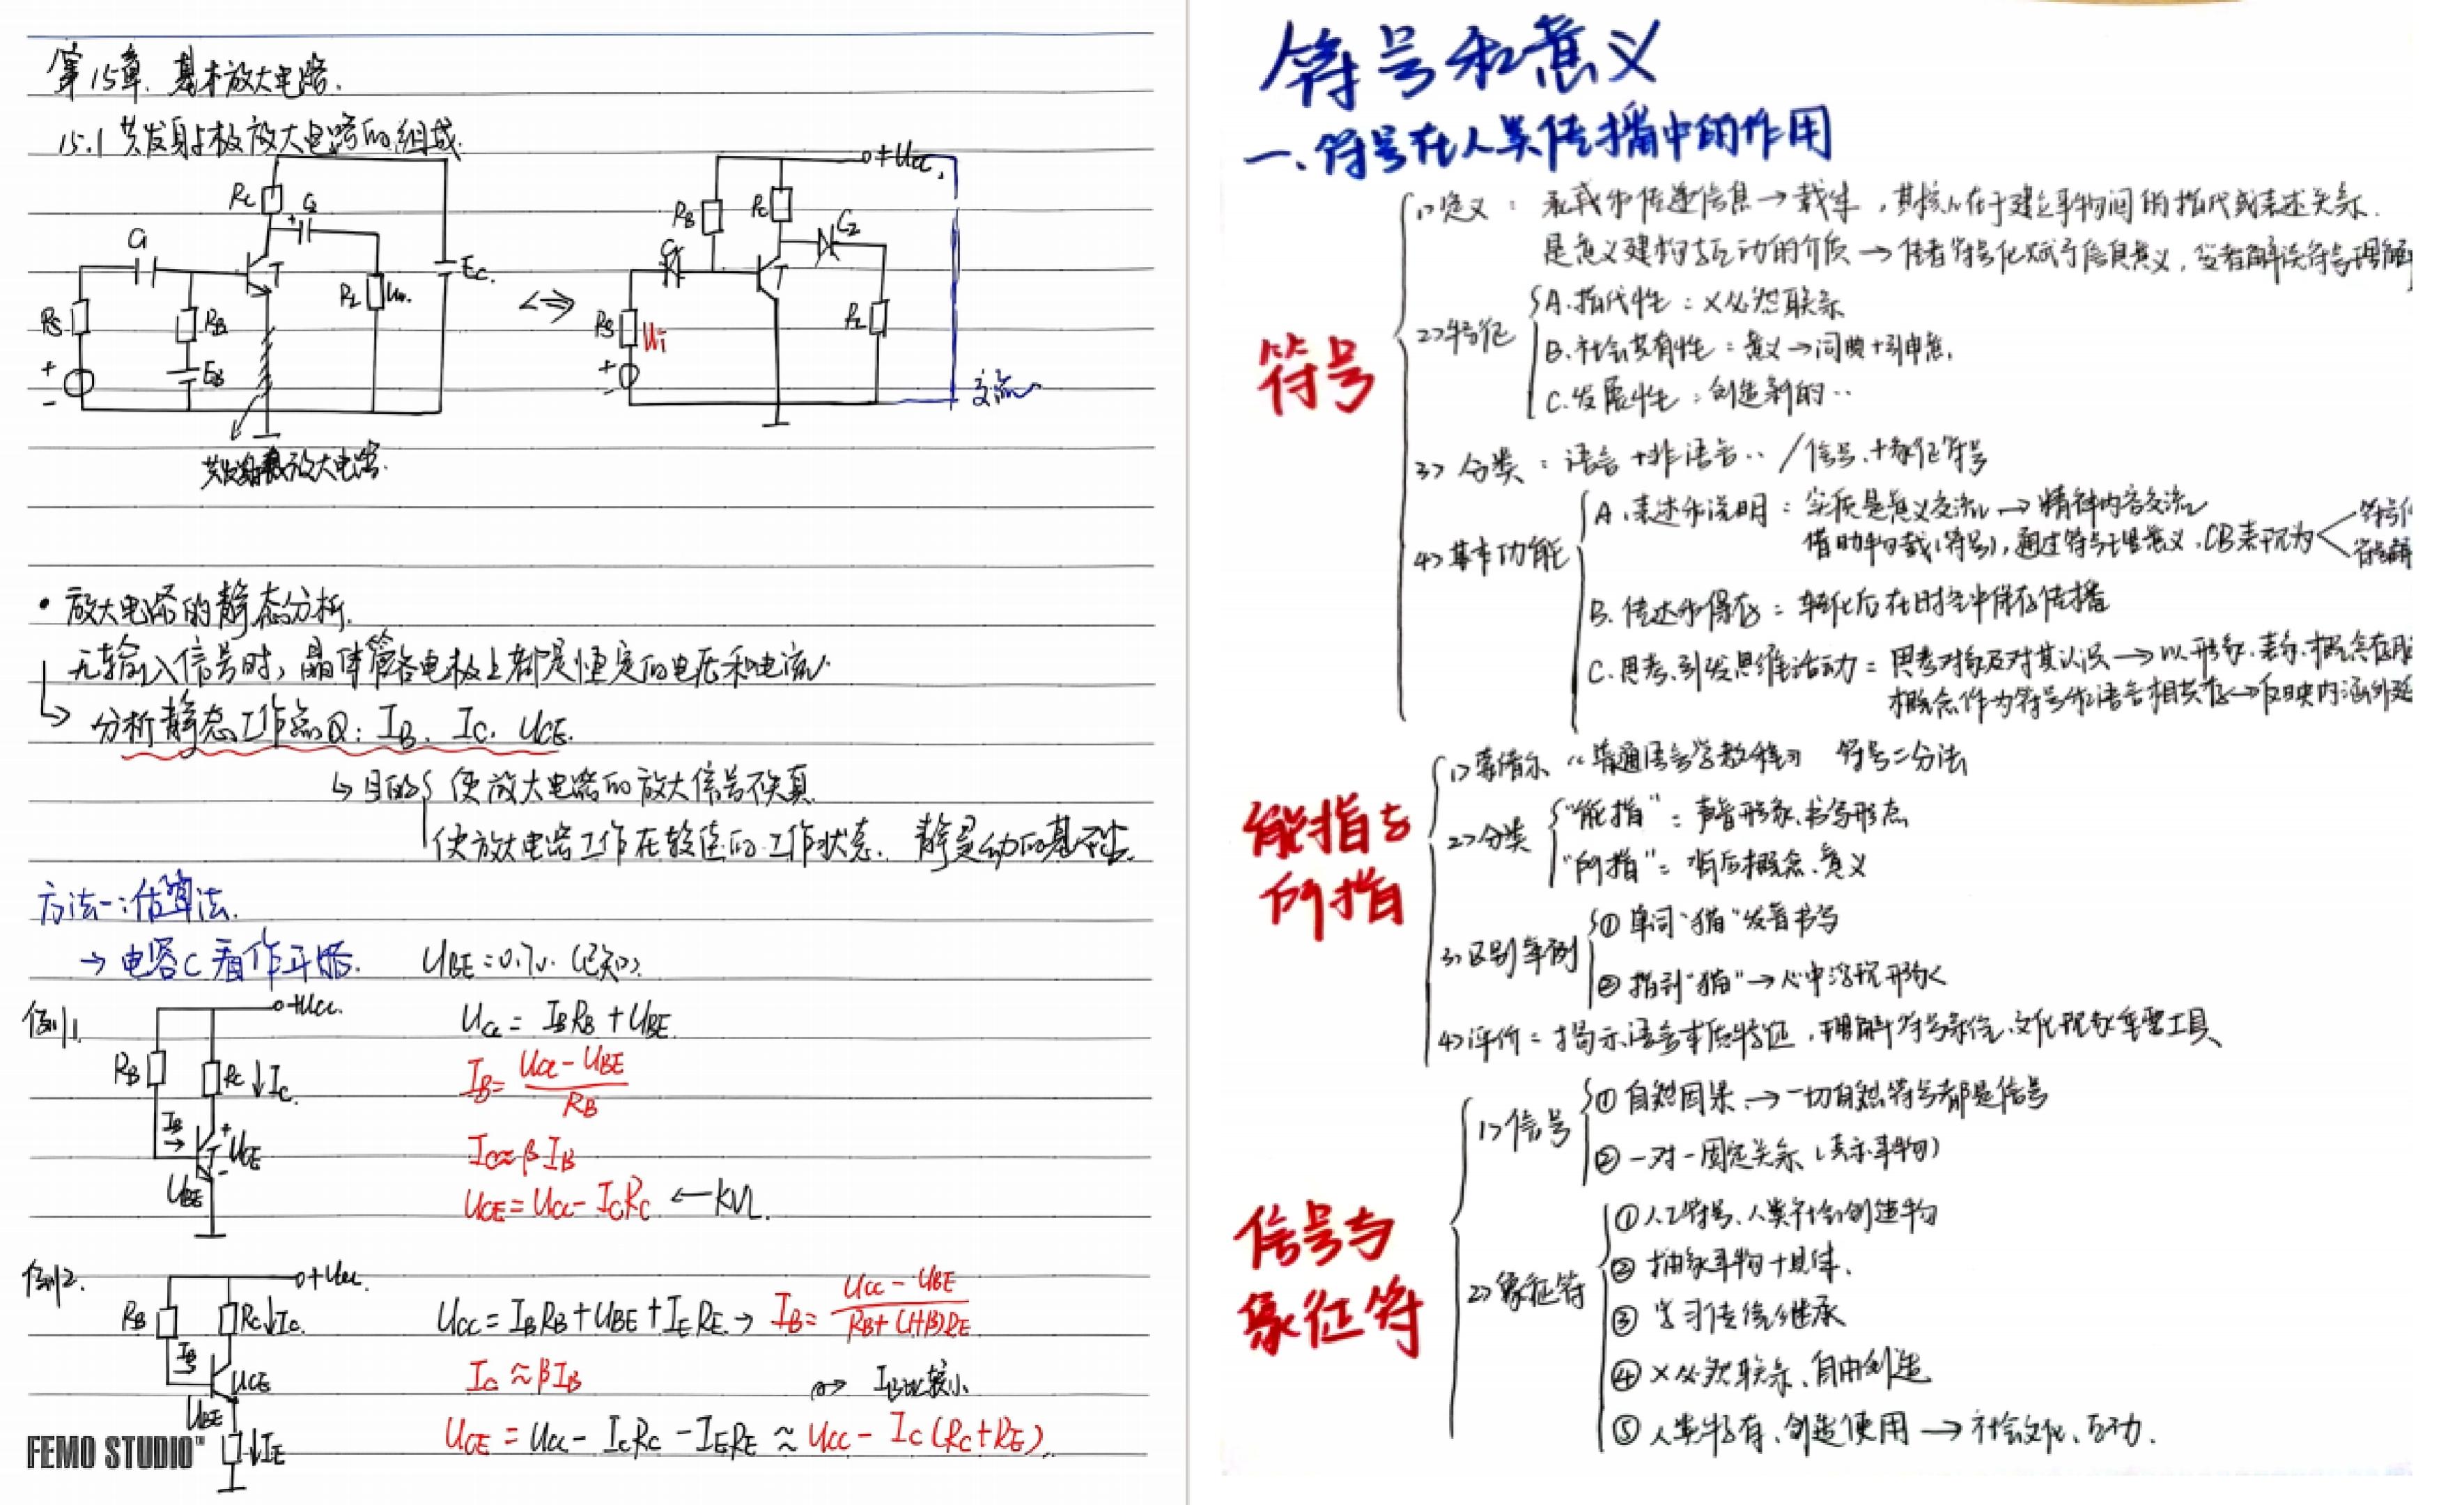 第15章. 基本放大电路.
15.1 共发射极放大电路的组成.
RC
C2
+
C1
T
EC.
RL
RS
RB
EB
+
-
共发射极放大电路.
<=>
o+UCC.
RB
RC
C2
C1
T
RS
Ui
RL
+
-
交流
• 放大电路的静态分析.
无输入信号时, 晶体管各电极上都是恒定的电压和电流
↳ 分析静态工作点Q: IB. IC. UCE.
↳ 目的{ 使放大电路的放大信号不失真
使放大电路工作在较佳的工作状态. 静是动的基础.
方法一:估算法.
→ 电容C看作开路. UBE=0.7V. (已知).
例1
o+UCC.
RB
RC ↓IC.
IB
→
+
T UCE
-
UBE
UCC = IBRB + UBE.
IB= (UCC-UBE)/RB
IC≈βIB
UCE = UCC - ICRC ← KVL.
例2.
o+UCC.
RB
RC↓IC.
IB
UCE
UBE
↓IE
UCC = IBRB + UBE + IERE. → IB= (UCC-UBE)/(RB+(1+β)RE)
IC ≈ βIB
IB比较小
UCE = UCC - ICRC - IERE ≈ UCC - IC(RC+RE).
FEMO STUDIO™
符号和意义
一、符号在人类传播中的作用
符号
1> 定义: 承载和传递信息→载体, 其核心在于建立事物间的指代或表述关系.
是意义建构与互动的介质→传者符号化赋予信息意义, 受者解读符号理解
2> 特征
A.指代性: ×必然联系
B.社会共有性: 意义→词典+引申意.
C.发展性: 创造新的··
3> 分类: 语言+非语言·· / 信号.+象征符号
4> 基本功能
A.表述和说明: 实质是意义交流→精神内容交流
借助物载(符号), 通过符号 意义. 表现为
符号化
符号解
B.传达和保存: 转化后在时空中保存传播
C.思考.引发思维活动: 思考对象及对其认识→以形象.表象.概念存
概念作为符号和语言相共存→反映内涵外延
能指与
所指
1> 索绪尔《普通语言学教程》 符号二分法
2> 分类
"能指": 声音形象.书写形态
"所指": 背后概念.意义
3> 区别举例
① 单词"猫"发音书写
② 指引"猫"→心中浮现形象
4> 评价: 揭示语言本质特征, 理解符号系统.文化现象重要工具
信号与
象征符
1> 信号
① 自然因果→一切自然符号都是信号
② 一对一固定关系(表示事物)
2> 象征符
① 人工符号、人类社会创造物
② 抽象事物+具体.
③ 学习传统继承
④ ×必然联系、自由创造
⑤ 人类特有、创造使用→社会文化、互动.